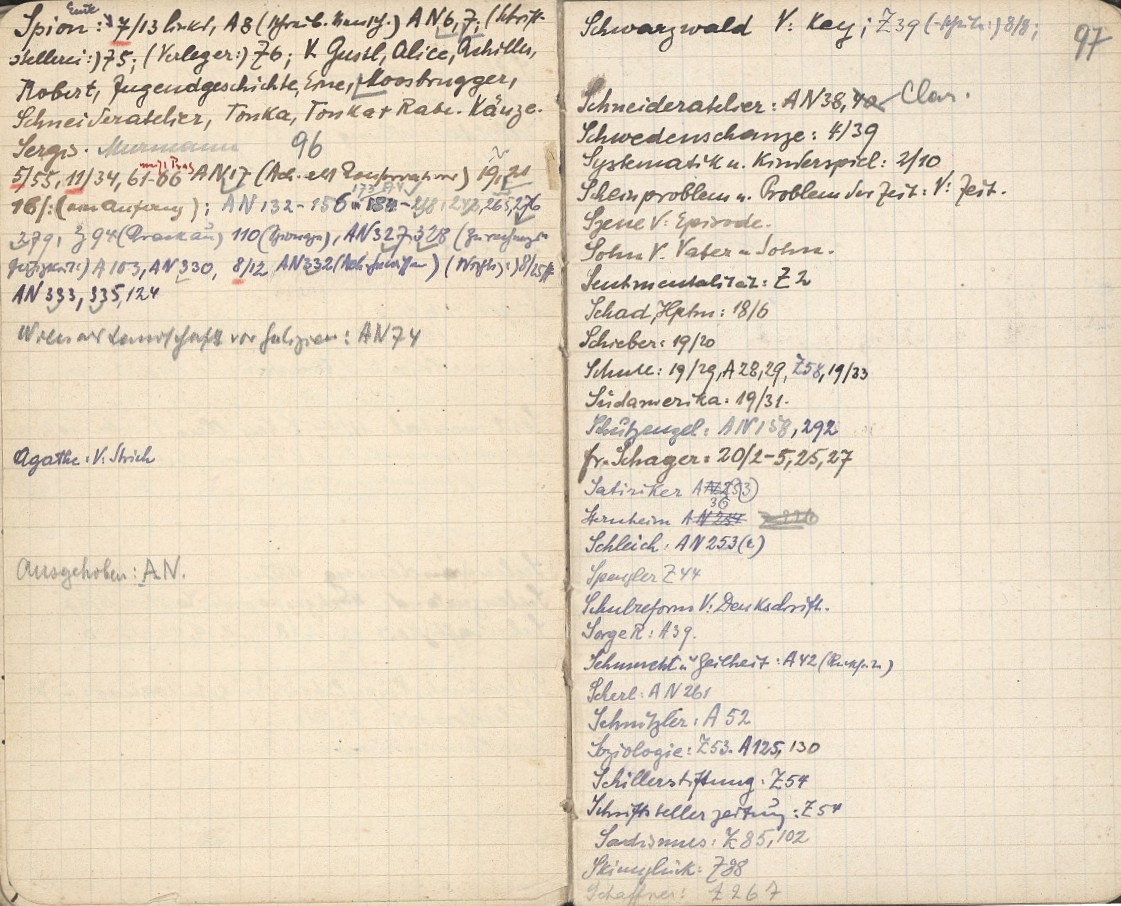 Spion: 7/13 links, A8 AN6,7, (Schrift-
stellerei:) 75; (Verleger:) 76; V. Gustl, Alice, Achilles,
Robert, Jugendgeschichte, Moosbrugger,
Schneideratelier, Tonka, Tonka + Rabe. Käuze.
Sergs. 96
5/55, 11/34, 61-66 AN17 19, 21
16/: (am Anfang); AN 132-156 242, 265, 276
379, 94 110 AN 327, 328
A103, AN 330, 8/12 AN 332 8/25
AN 333, 335, 124
Wien als Landschaft vor Galizien: AN 74
Agathe: V. Strich
Ausgehoben: AN.
97
Schwarzwald V: Key; Z39 8/8;
Schneideratelier: AN38, Clar.
Schwedenschanze: 4/39
Systematik u. Kinderspiel: 2/10
Scheinproblem u. Problem der Zeit: V: Zeit.
Szene V: Episode.
Sohn V. Vater u Sohn.
Sentimentalität: Z 2
Schad, Hptm: 18/6
Schieber: 19/20
Schule: 19/29, A28, 29, Z58, 19/33
Südamerika: 19/31.
Schutzengel: AN158, 292
fr. Schager: 20/2-5, 25, 27
Satiriker AN 253
Sternheim AN 36
Schleich: AN 253(2)
Spengler Z44
Schulreform V: Denkschrift.
Sorge R: A39.
Sehnsucht u Geilheit: A42
Scherl: AN 261
Schnitzler: A 52
Soziologie: Z53. A125, 130
Schillerstiftung: Z54
Schriftstellerzeitung: Z54
Sadismus: Z 85, 102
Skiunglück: Z88
Schaffner: Z 267